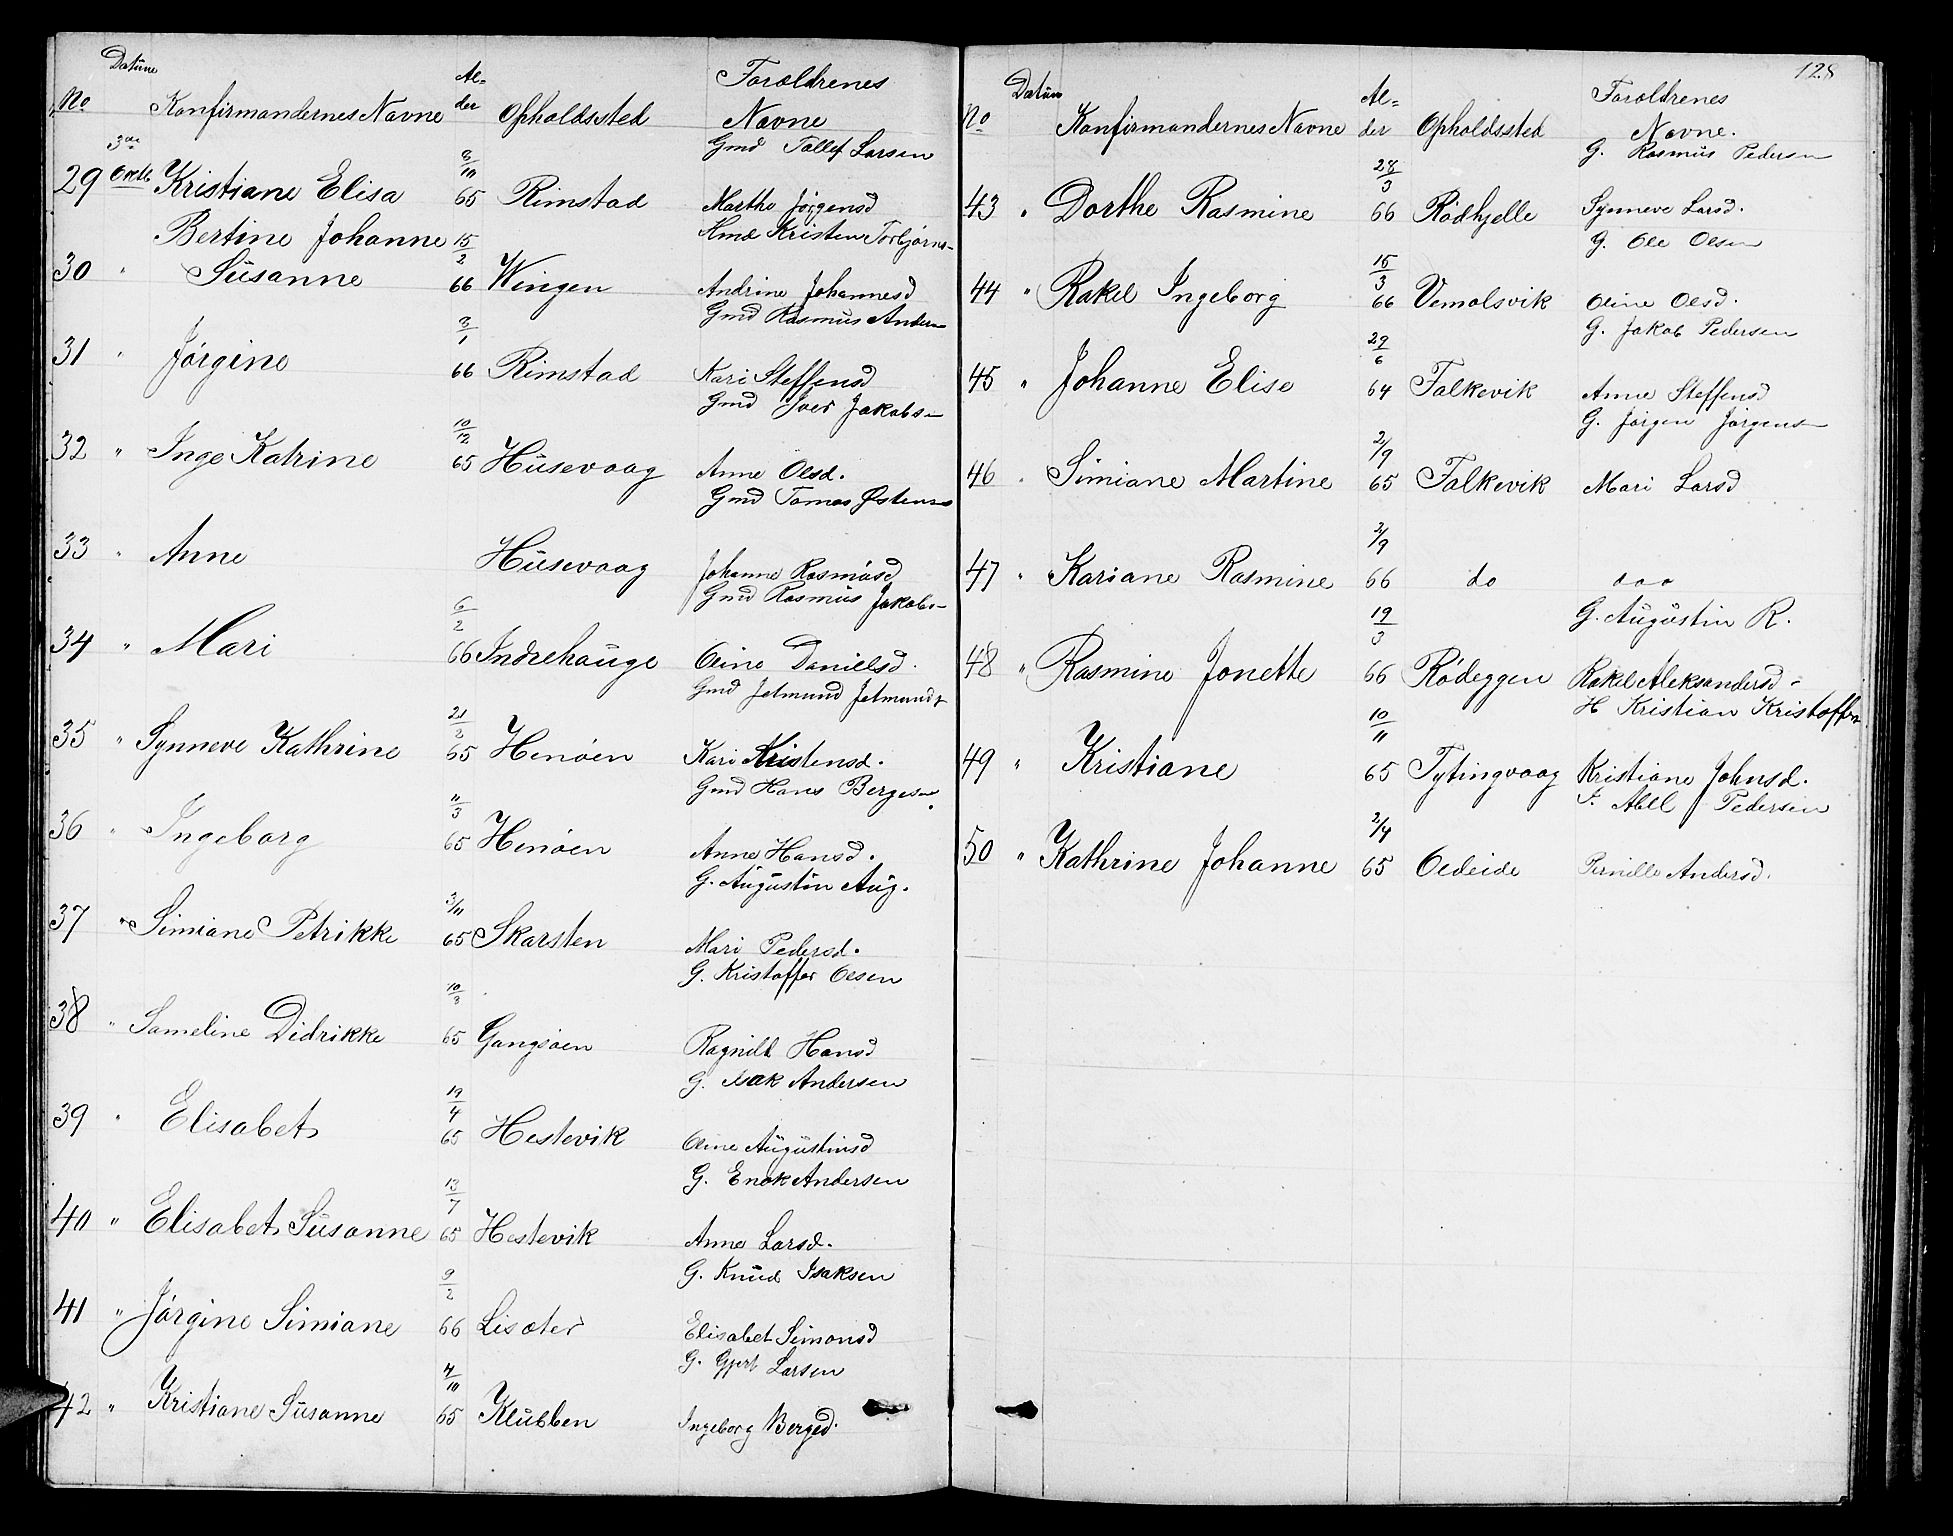 Datum
No Konfirmandernes Navne Al= der Opholdssted Forældrenes Navne
3die Gmd Tollef Larsen
29 Oktb Kristiane Elisa 8/10 65 Rimstad Marthe Jørgensd
Bertine Johanne Hmd Kristen Torbjørns-
30 " Susanne 15/2 66 Wingen Andrine Johannesd
Gmd Rasmus Anders-
31 " Jørgine 8/1 66 Rimstad Kari Steffensd
Gmd Iver Jakobs-
32 " Inge Katrine 10/12 65 Husevaag Anne Olsd.
Gmd Tomas Østens-
33 " Anne Husevaag Johanne Rasmusd
Gmd Rasmus Jakobs-
34 " Mari 6/2 66 Indrehauge Oline Danielsd.
Gmd Jetmund Jetmunds
35 " Synneve Kathrine 21/3 65 Henøen Kari Kristensd.
Gmd Hans Berges-
36 " Ingeborg 11/3 65 Henøen Anne Hansd.
G. Augustin Aug.
37 " Simiane Petrikke 3/11 65 Skarsten Mari Pedersd.
G. Kristoffer Olsen
38 " Sameline Didrikke 10/3 65 Gangsøen Ragnild Hansd
G. Isak Andersen
39 " Elisabet 19/4 65 Hestevik Oline Augustinsd
G. Enok Andersen
40 " Elisabet Susanne 13/7 65 Hestevik Anne Larsd.
G. Knud Isaksen
41 " Jørgine Simiane 9/2 66 Lisæter Elisabet Simonsd
G. Gjert Larsen
42 " Kristiane Susanne 4/10 65 Klubben Ingeborg Bergsd.
128
Datum
No Konfirmandernes Navne Al= der Opholdssted Forældrenes Navne.
G. Rasmus Pedersen
43 " Dorthe Rasmine 28/3 66 Rødhjelle Synneve Larsd.
G. Ole Olsen
44 " Rakel Ingeborg 15/3 66 Vemolsvik Oline Olsd.
G. Jakob Pedersen
45 " Johanne Elise 29/6 64 Falkevik Anne Steffensd
G. Jørgen Jørgens-
46 " Simiane Martine 2/9 65 Falkevik Mari Larsd
47 " Kariane Rasmine 2/9 66 do doo
G. Augustin R.
48 " Rasmine Jonette 19/3 66 Rødeggen Rakel Aleksandersd-
H Kristian Kristoffer
49 " Kristiane 10/11 65 Tytingvaag Kristiane Johnsd.
S. Abel Pedersen
50 " Kathrine Johanne 2/4 65 Oldeide Pernille Andersd.